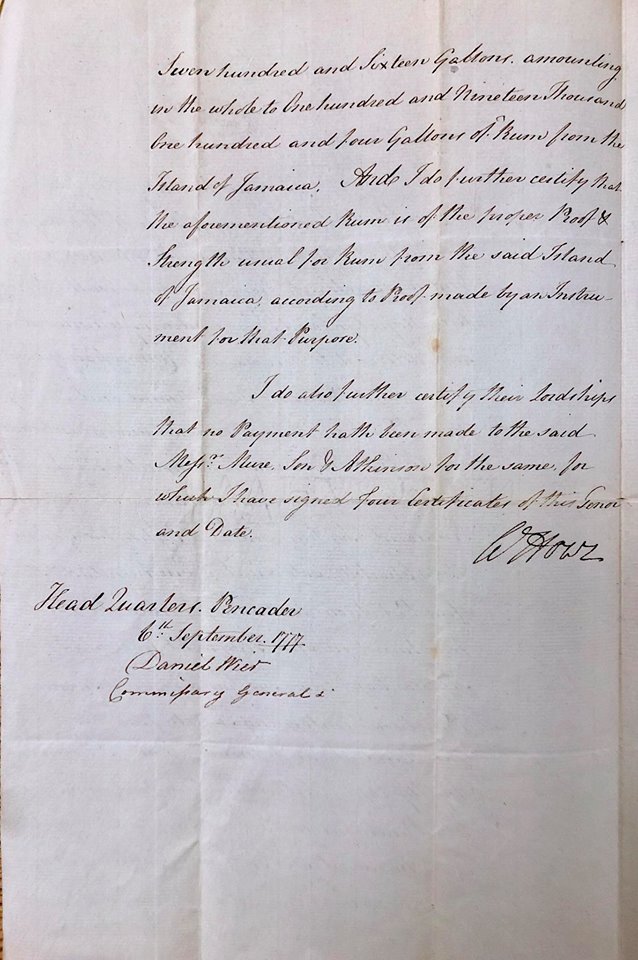 Seven hundred and Sixteen Gallons. amounting
in the whole to One hundred and Nineteen Thousand
One hundred and four Gallons of Rum from the
Island of Jamaica. And I do further certify that
the aforementioned Rum is of the proper Proof &
Strength usual for Rum from the said Island
of Jamaica, according to Proof made by an Instru-
ment for that Purpose.
I do also further certify their Lordships
that no Payment hath been made to the said
Messrs. Mure, Son & Atkinson for the same, for
which I have signed four Certificates of this Tenor
and Date.
W Howe
Head Quarters. Pencader
6th September. 1777
Daniel Wier
Commissary General &